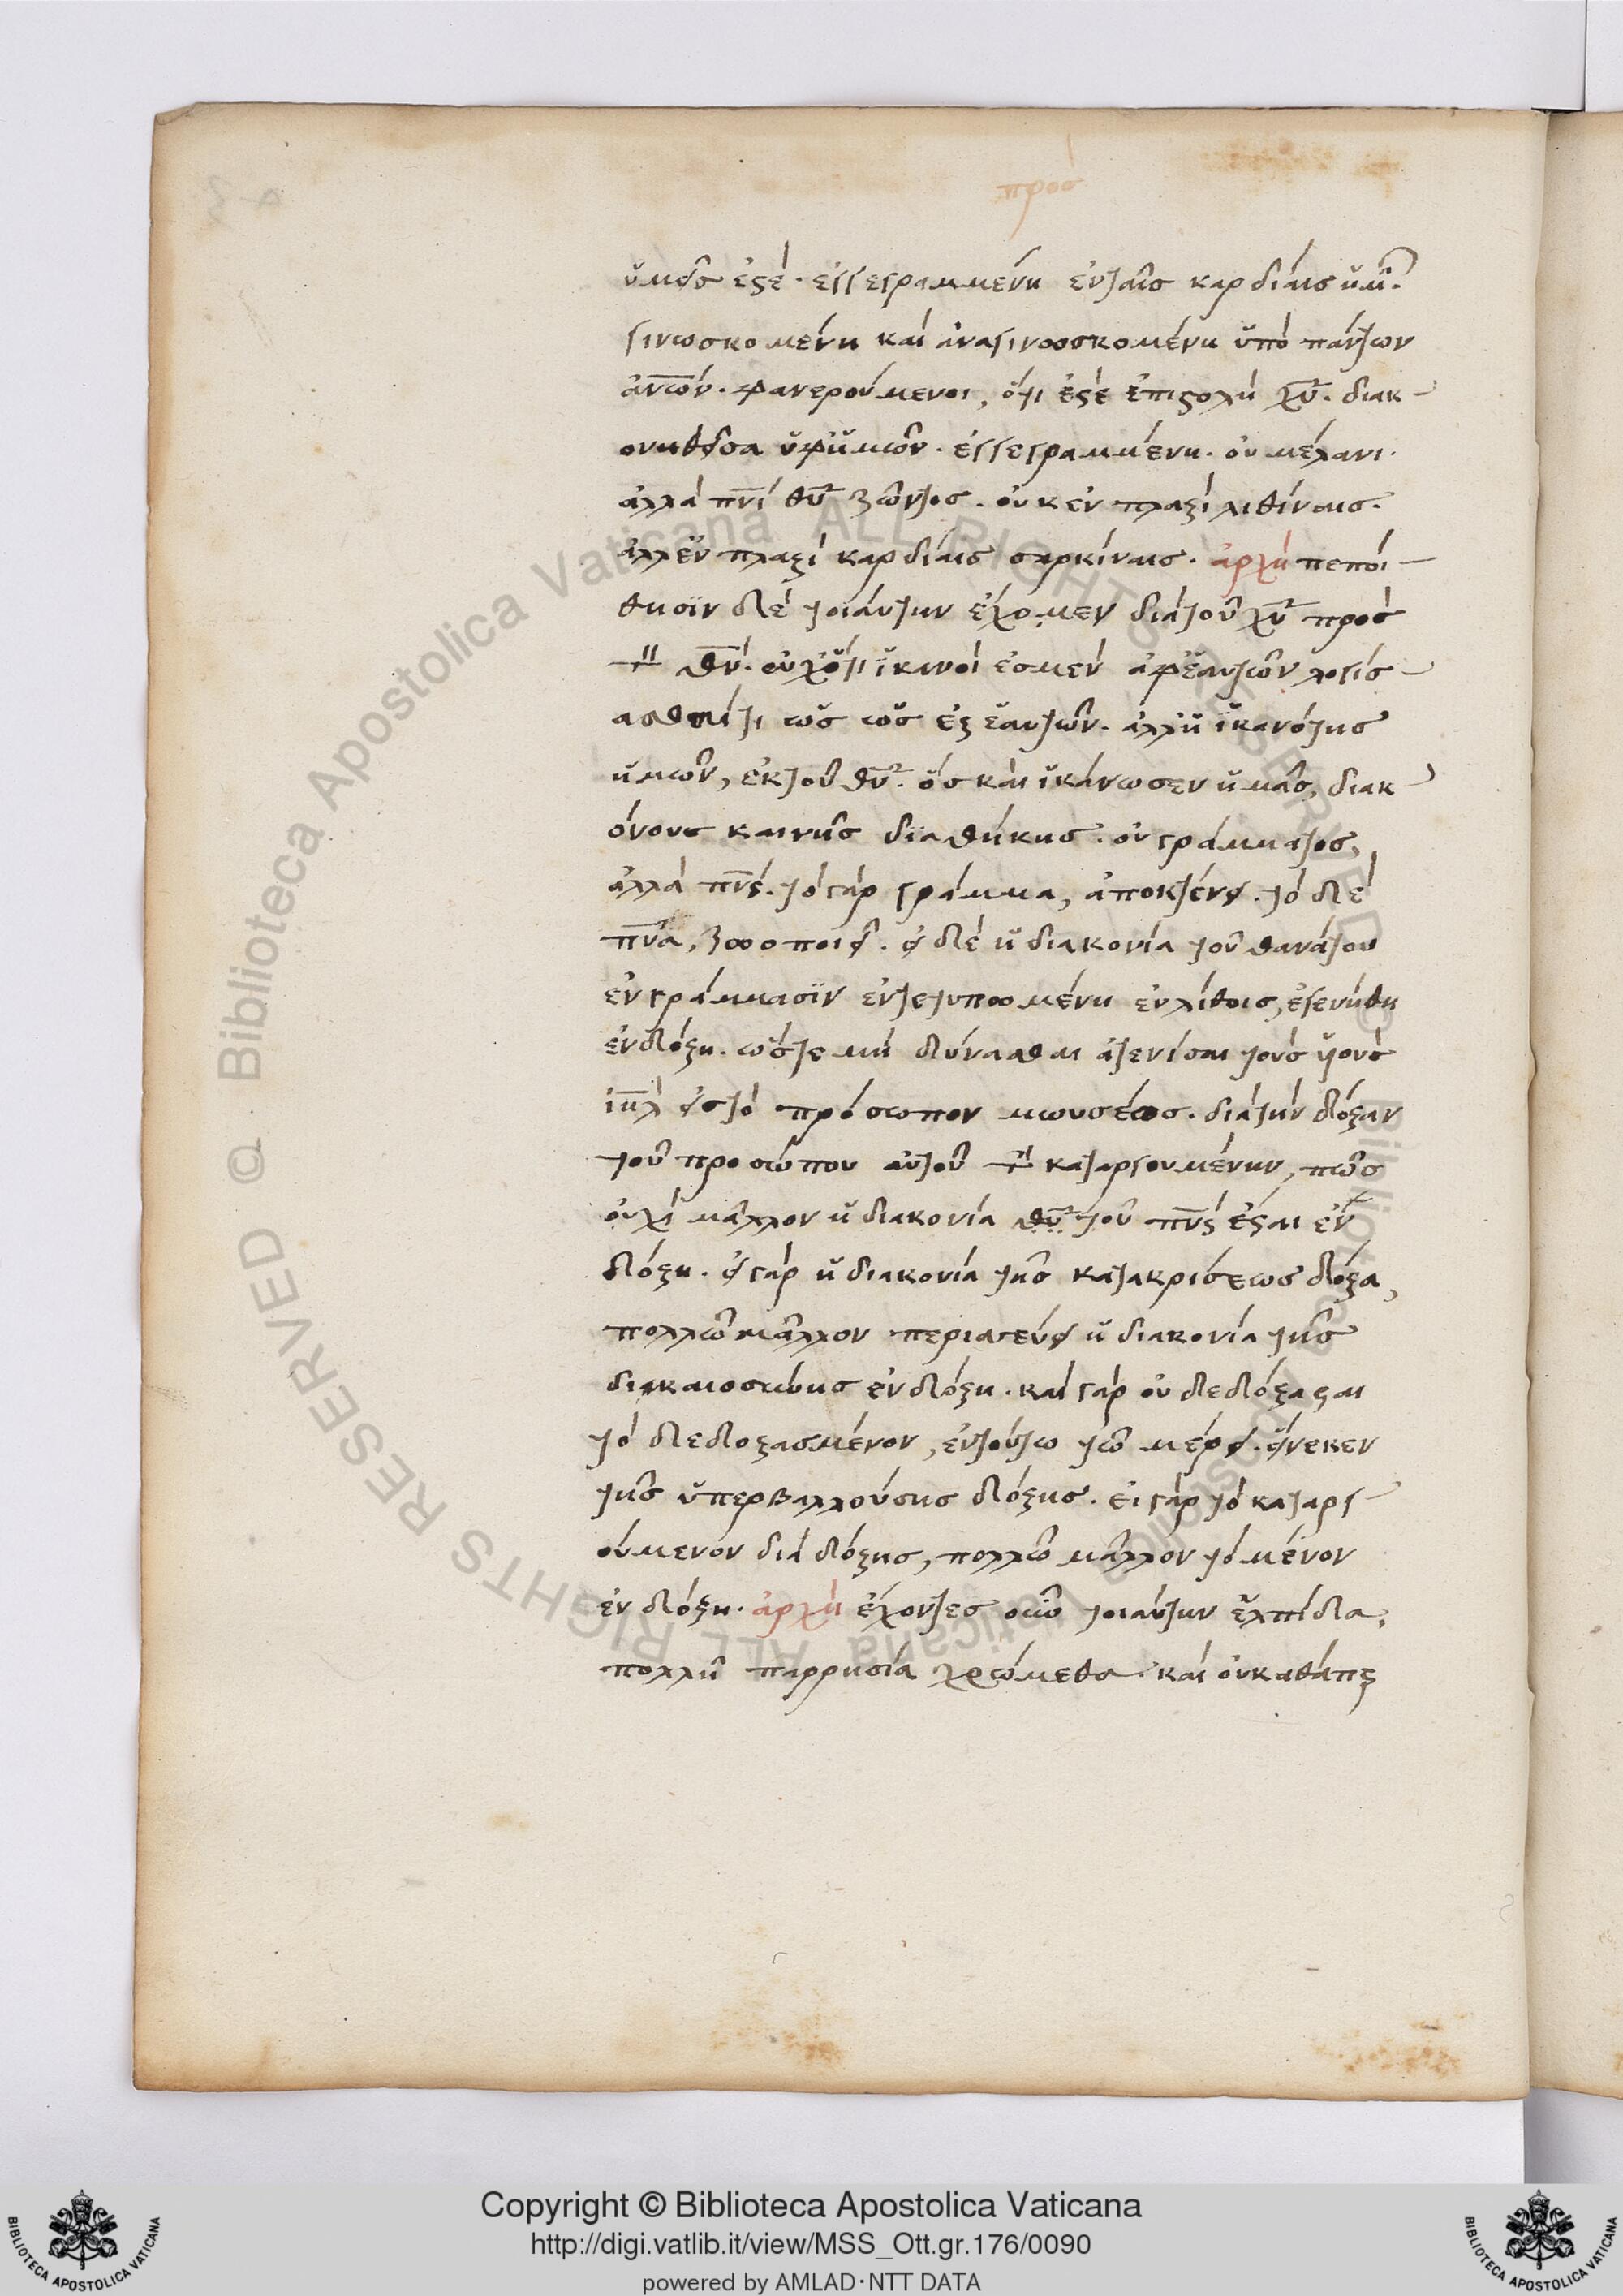 προσ
ὑμεῖς ἐστέ· ἐγγεγραμμένη ἐν ταῖς καρδίαις ἡμῶν·
γινωσκομένη καὶ ἀναγινωσκομένη ὑπὸ πάντων
ἀνων· φανερούμενοι, ὅτι ἐστὲ ἐπιστολὴ χυ· διακ-
ονηθεῖσα ὑφ' ἡμῶν· ἐγγεγραμμένη· οὐ μέλανι·
ἀλλὰ πνι θυ ζῶντος· οὐκ ἐν πλαξὶ λιθίναις·
ἀλλ' ἐν πλαξὶ καρδίαις σαρκίναις· ἀρχὴ πεποί-
θησϊν δὲ τοιαύτην ἔχομεν διὰ τοῦ χυ πρὸς
τὸν θν· οὐχ' ὅτι ἱκανοί ἐσμεν ἀφ' ἑαυτῶν λογίσ-
ασθαί τι ὡς ὡς ἐξ ἑαυτῶν· ἀλλ' ἡ ἱκανότης
ἡμῶν, ἐκ τοῦ θυ· ὃς καὶ ἱκάνωσεν ἡμᾶς, διακ-
όνους καινῆς διαθήκης· οὐ γράμματος,
ἀλλὰ πνς· τὸ γὰρ γράμμα, ἀποκτένει· τὸ δὲ
πνα, ζωοποιεῖ· εἰ δὲ ἡ διακονία τοῦ θανάτου
ἐν γράμμασϊν ἐντετυπωμένη ἐν λίθοις, ἐγενήθη
ἐν δόξη· ὥστε μὴ δύνασθαι ἀτενίσαι τοὺς υἱοὺς
ιηλ εἰς τὸ πρόσωπον μωυσέως· διὰ τὴν δόξαν
τοῦ προσώπου αὐτοῦ τὴν καταργουμένην, πῶς
οὐχὶ μᾶλλον ἡ διακονία θυ τοῦ πνς ἔσται ἐν
δόξη· εἰ γὰρ ἡ διακονία τῆς κατακρίσεως δόξα,
πολλῶ μᾶλλον περισσεύει ἡ διακονία τῆς
δικαιοσύνης ἐν δόξη· καὶ γὰρ οὐ δεδόξασται
τὸ δεδοξασμένον, ἐν τούτω τῶ μέρει· εἵνεκεν
τῆς ὑπερβαλλούσης δόξης· εἰ γὰρ τὸ καταργ-
ούμενον διὰ δόξης, πολλῶ μᾶλλον τὸ μένον
ἐν δόξη· ἀρχὴ ἔχοντες οὖν τοιαύτην ἐλπίδα,
πολλῆ παρρησία χρώμεθα· καὶ οὐ καθάπερ
Copyright © Biblioteca Apostolica Vaticana
http://digi.vatlib.it/view/MSS_Ott.gr.176/0090
powered by AMLAD·NTT DATA
BIBLIOTECA APOSTOLICA VATICANA
BIBLIOTECA APOSTOLICA VATICANA
© Biblioteca Apostolica Vaticana ALL RIGHTS RESERVED © Biblioteca Apostolica Vaticana ALL RIGHTS RESERVED